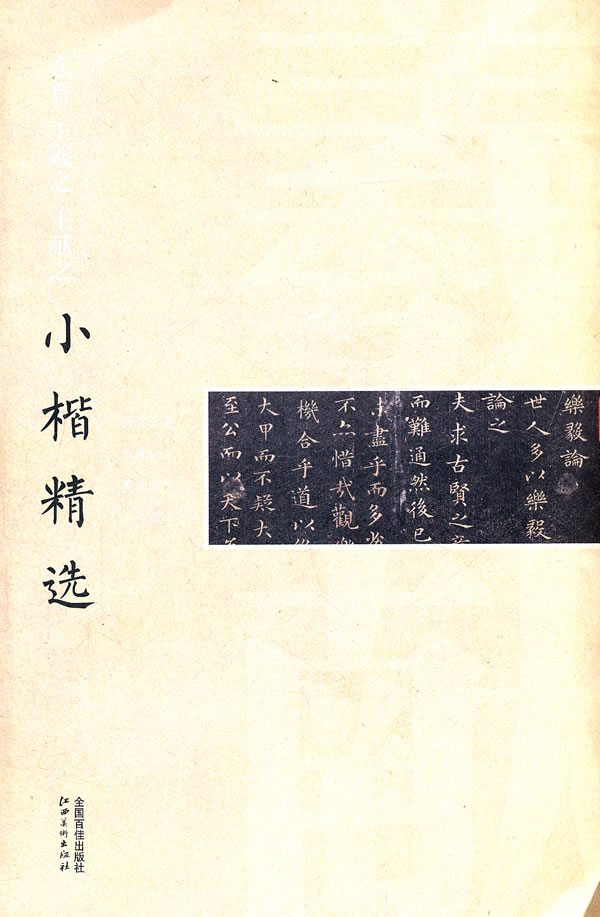 东晋 王羲之 王献之
小楷精选
樂毅論
世人多以樂毅
論之
夫求古賢之意
而難通然後已
未盡乎而多劣
不亦惜哉觀樂
機合乎道以終
大甲而不疑大
至公而以天下為
全国百佳出版社
江西美術出版社